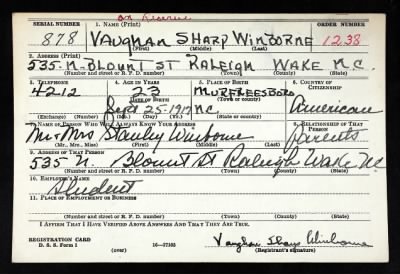 on Reverse
SERIAL NUMBER 1. NAME (Print) ORDER NUMBER
878 VAUGHAN SHARP WINBORNE 1238
(First) (Middle) (Last)
2. ADDRESS (Print)
535-N-BLOUNT ST RALEIGH WAKE N.C.
(Number and street or R. F. D. number) (Town) (County) (State)
3. TELEPHONE 4. AGE IN YEARS 5. PLACE OF BIRTH 6. COUNTRY OF CITIZENSHIP
4212 23 MURFREESBORO
DATE OF BIRTH (Town or county)
Sept 25-1917 N.C. American
(Exchange) (Number) (Mo.) (Day) (Yr.) (State or country)
7. NAME OF PERSON WHO WILL ALWAYS KNOW YOUR ADDRESS 8. RELATIONSHIP OF THAT PERSON
Mr + Mrs Stanley Winborne Parents
(Mr., Mrs., Miss) (First) (Middle) (Last)
9. ADDRESS OF THAT PERSON
535 N. Blount St Raleigh Wake NC
(Number and street or R. F. D. number) (Town) (County) (State)
10. EMPLOYER'S NAME
Student
11. PLACE OF EMPLOYMENT OR BUSINESS
(Number and street or R. F. D. number) (Town) (County) (State)
I AFFIRM THAT I HAVE VERIFIED ABOVE ANSWERS AND THAT THEY ARE TRUE.
REGISTRATION CARD
D. S. S. Form 1 (over) 16—17105 Vaughan Sharp Winborne
Registrant's signature